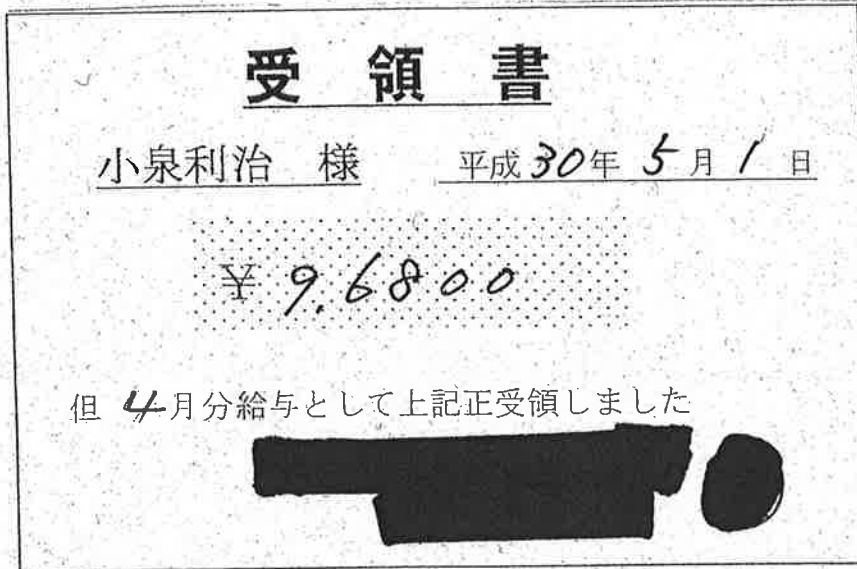 受領書
小泉利治 様 平成30年5月1日
¥9,6800
但 4月分給与として上記正受領しました